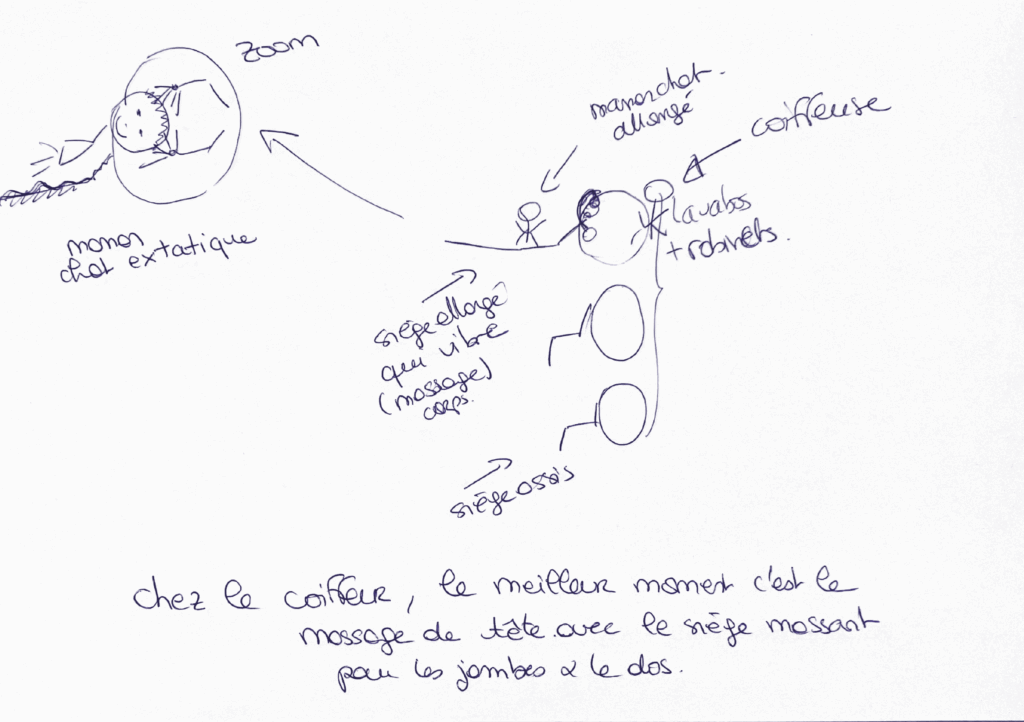 zoom
manonchat.
allongé
coiffeuse
lavabos
+ robinets.
manon
chat extatique
siège allongé
qui vibre
(massage)
corps.
siège assis
chez le coiffeur, le meilleur moment c'est le
massage de tête avec le siège massant
pour les jambes & le dos.